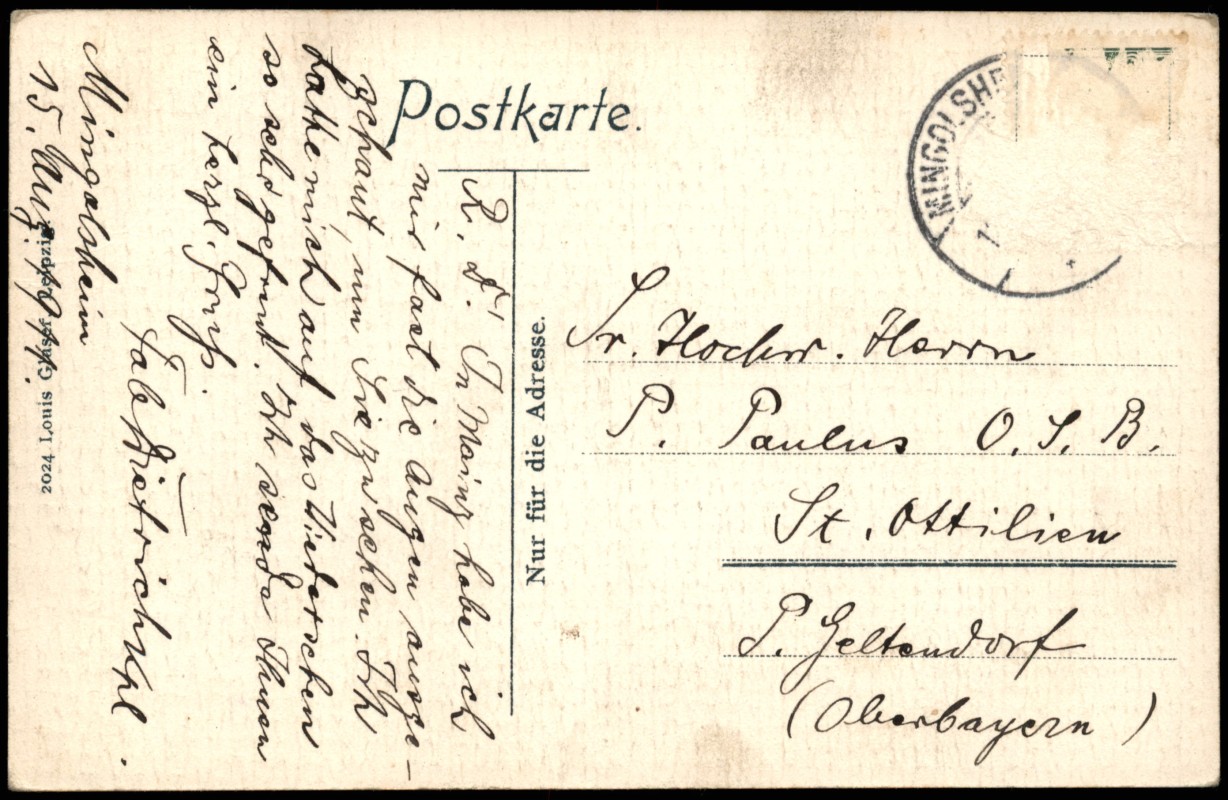 Postkarte.
Nur für die Adresse.
2024 Louis Glaser Leipzig
MINGOLSHE
Sr. Hochw. Herrn
P. Paulus O. S. B.
St. Ottilien
P. Geltendorf
(Oberbayern)
R. P.! In Mainz habe ich
mir fast die Augen ausge-
schaut, um Sie zu sehen. Ich
hatte mich auf das Wiedersehen
so sehr gefreut. Ich sende Ihnen
ein herzl. Grüß.
Dietrich
Mingolsheim
15. Aug. 1911.